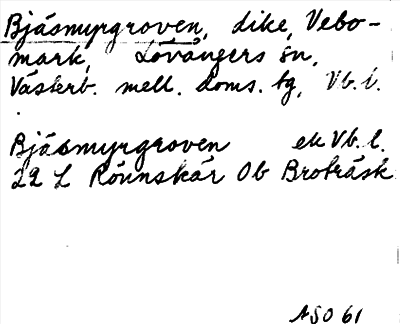 Bjäsmyrgroven, dike, Vebo-
mark, Lövångers sn,
Västerb. mell. doms. tg, Vb. l.
Bjäsmyrgroven ek Vb. l.
22 L Rönnskär 0b Broträsk
ASO 61